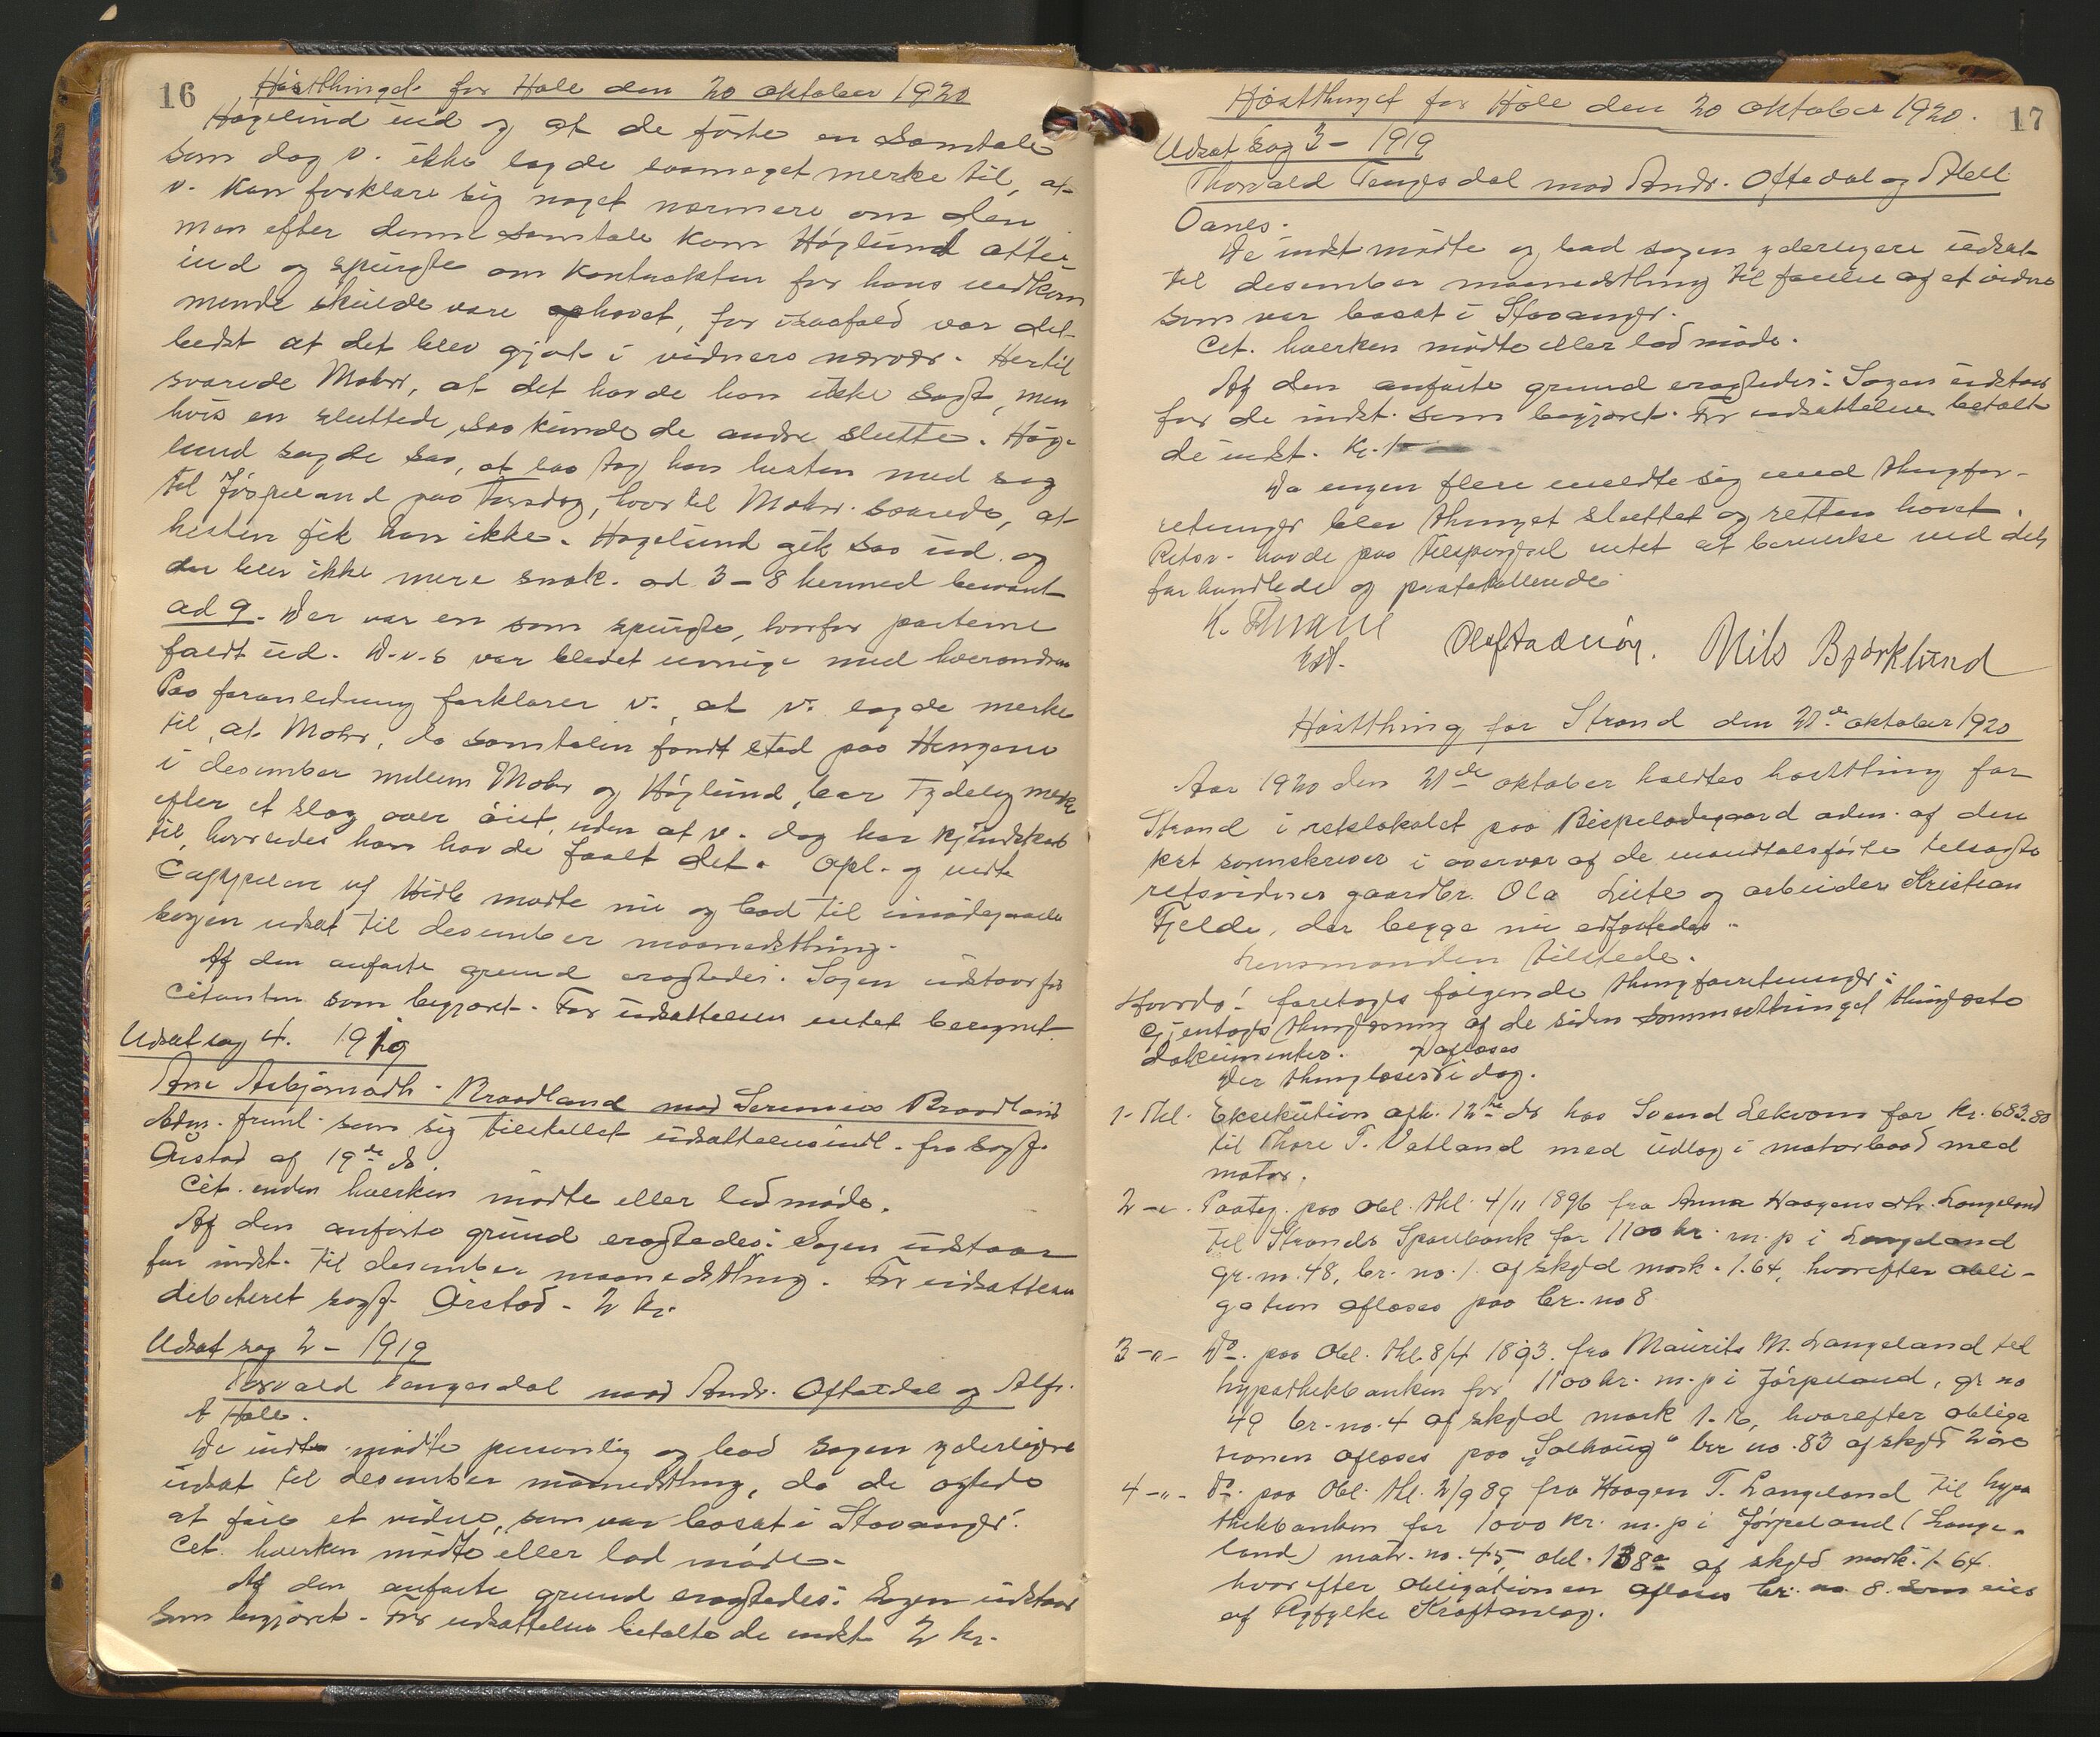 16
Høstthinget for Hole den 20 oktober 1920
Høgelund ind og at de førte en samtale
som dog v. ikke lagde saameget merke til, at
v. kan forklare sig noget nærmere om den
men efter denne samtale kom Høglund atter
ind og spurgte om kontrakten for hans vedkom
mende skulde være ophævet, for isaafald var det
bedst at det blev gjort i vidners nærvær. Hertil
svarede Mohr, at det havde han ikke sagt, men
hvis en sluttede, saa kunde de andre slutte. Høg-
lund sagde saa, at saa tog han hesten med sig
til Jørpeland paa torsdag, hvortil Mohr svarede, at
hesten fik han ikke. Høgelund gik saa ud og
der blev ikke mere snak. ad 3-8 hermed besvart
ad 9. Der var en som spurgte, hvorfor parterne
faldt ud. D.v.s var bledet uenige med hverandre
Paa foranledning forklarer v., at v. lagde merke
til, at Mohr, da samtalen fandt sted paa Hengene
i desember mellem Mohr og Høglund, bar tydelig merke
efter et slag over øiet, uden at v. dog har kjendskab
til, hvorledes han havde faaet det. Opl. og vedt.
Cappelen vf Hidle mødte nu og bad til imødegaaelse
sagen udsat til desember maanedsthing.
Af den anførte grund eragtedes: Sagen udstaar for
Citanten som begjæret. For udsættelsen intet beregnet.
Udsat sag 4. 1919
Ane Asbjørnsdtr. Braadland mod Serenius Braadland
Adm. freml. som sig tilstillet udsættelsesindl. fra sagf.
Ørstad af 19de ds.
Cit. enden hverken mødte eller lod møde.
Af den anførte grund eragtedes: Sagen udstaar
for indst. til desember maanedsthing. For udsættelsen
debiteret sagf. Ørstad - 2 kr.
Udsat sag 2 - 1919
Torvald Tengesdal mod Andr. Oftedal og Alfr.
A Hole.
De indst. mødte personlig og bad sagen yderligere
udsat til desember maanedsthing, da de agtede
at føre et vidne, som var bosat i Stavanger.
Cit. hverken mødte eller lod møde.
Af den anførte grund eragtedes: Sagen udstaar
som begjæret. For udsættelse betalte de indst. 2 kr.
17
Høstthinget for Hole den 20 oktober 1920.
Udsat sag 3 - 1919
Thorvald Tengesdal mod Andr. Oftedal og
Oanes.
De indst mødte og bad sagen yderligere udsat
til desember maanedsthing til førelse af et vidne
som var bosat i Stavanger.
Cit. hverken mødte eller lod møde.
Af den anførte grund eragtedes: Sagen udstaar
for de indst. som begjæret. For udsættelsen betalte
de indst. kr. 1
Da ingen flere meldte sig med thingfor-
retninger blev thinget sluttet og retten hævet.
Retsv. havde paa tilspørgsel intet at bemerke ved det
forhandlede og protokollerede
K. Thrane
Est.
Olaf Nils Bjørklund
Høstthing for Strand den 21de oktober 1920
Aar 1920 den 21de oktober holdtes høstthing for
Strand i retslokalet paa Bispeladegaard adm. af den
kst sorenskriver i overvær af de mandtalsførte tilsagte
retsvidner gaardbr. Ola Liite og arbeider Kristian
Fjelde, der begge nu edfæstedes.
Lensmanden tilstede.
Hvorda! foretoges følgende thingforretninger:
Gjentoges thinglæsning af de siden sommerthinget thinglæste
dokumenter.
Der thinglæses og aflæses i dag.
1. Thl. Eksekution afh. 12te ds hos Svend Lekvam for kr. 683.80
til Thore T. Vatland med udlæg i motorbaad med
motor.
2 -"- Paateg. paa obl. thl. 4/11 1896 fra Anna Haagensdtr. Langeland
til Strands Sparebank for 1100 kr. m.p i Langeland
gr. no. 48, br. no. 1 af skyld mark 1.64, hvorefter obli-
gation aflæses paa br. no 8
3 -"- Do. paa Obl. thl. 8/4 1893. fra Maurits M. Langeland til
hypothekbanken for 1100 kr. m.p i Jørpeland, gr no
49 br. no. 4 af skyld mark 1.16, hvorefter obliga
tionen aflæses paa "Solhaug" br no. 83 af skyld 2 øre
4 -"- Do. paa Obl. thl. 2/9 89 fra Haagen T. Langeland til hypo
thekbanken for 1000 kr. m.p i Jørpeland (Lange-
land) matr. no. 45, obl. 138a af skyld mark 1.64
hvorefter obligationen aflæses br. no 8 som eies
af Ryfylke Kraftanlæg.